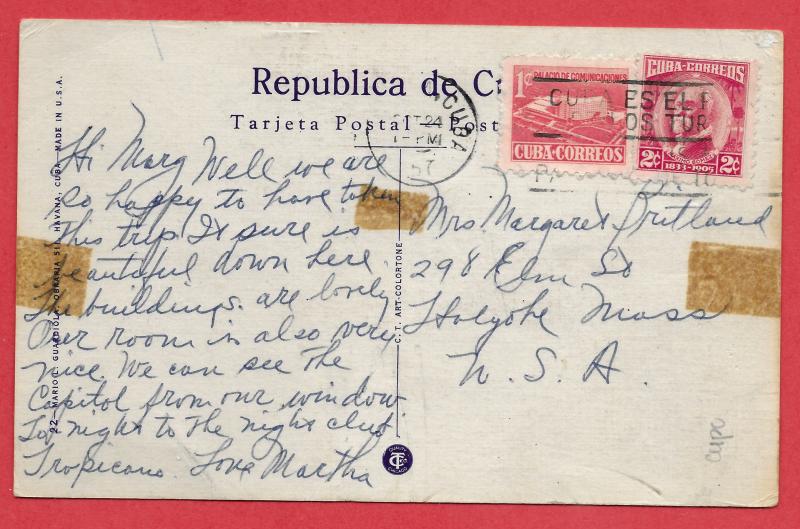 Republica de
Tarjeta Postal — Post
CUBA
24
PM
57
1¢ PALACIO DE COMUNICACIONES
CUBA·CORREOS
CUBA·CORREOS
2¢ 2¢
1833-1905
ES EL P
OS TUR
Hi Marg Well we are
so happy to have taken
this trip It sure is
beautiful down here.
The buildings are lovely
Our room is also very
nice. We can see the
Capitol from our window
To night to the night club
Tropicano. Love Martha
Mrs Margaret Pritland
298 Elm St
Holyoke Mass
U. S. A.
22—MARIO L. GUARDIOLA, OBRAPIA 511, HAVANA, CUBA. MADE IN U.S.A.
C. T. ART-COLORTONE
QUALITY
CT
CHICAGO